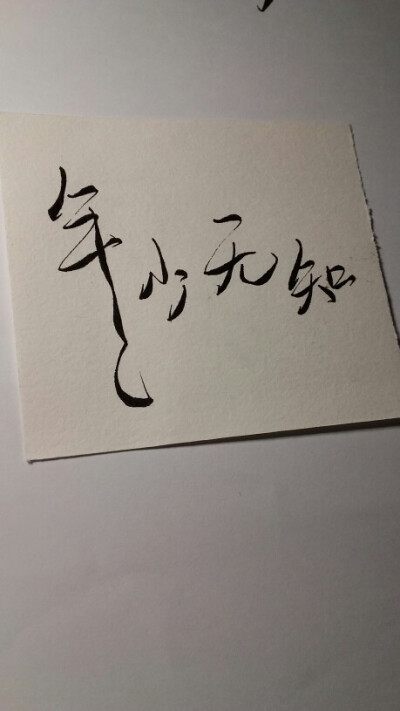 年少无知